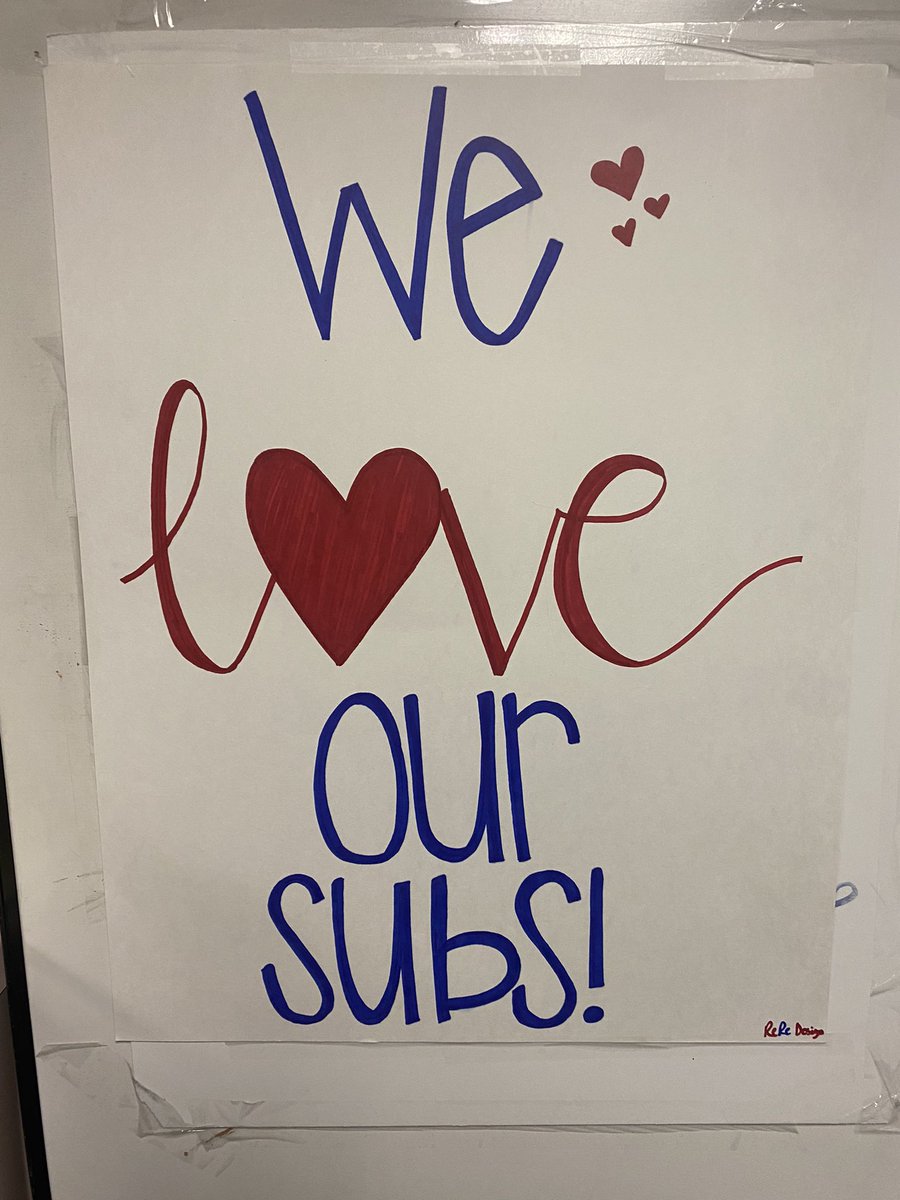 We
love
our
subs!
ReRe Design